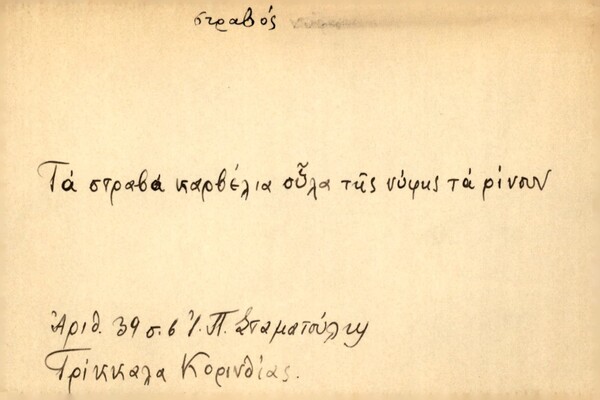 στραβός
Τά στραβά καρβέλια οὗλα τῆς νύφης τά ρίνουν
Ἀριθ. 39 σ. 6 Ἰ. Π. Σταματούλη
Τρίκκαλα Κορινθίας.